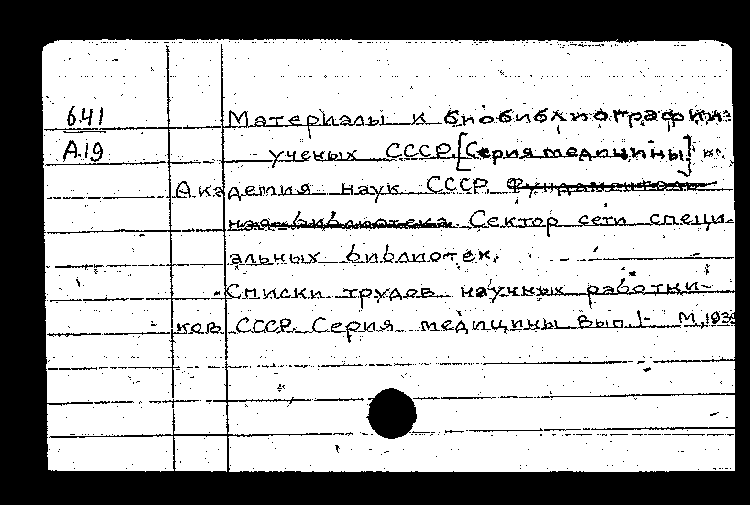 641
Материалы к биобиблиографии
А.19
ученых СССР. [Серия медицины]
Академия наук СССР. Фундаменталь-
ная библиотека. Сектор сети специ-
альных библиотек.
Списки трудов научных работни-
ков СССР. Серия медицины Вып. 1- М,